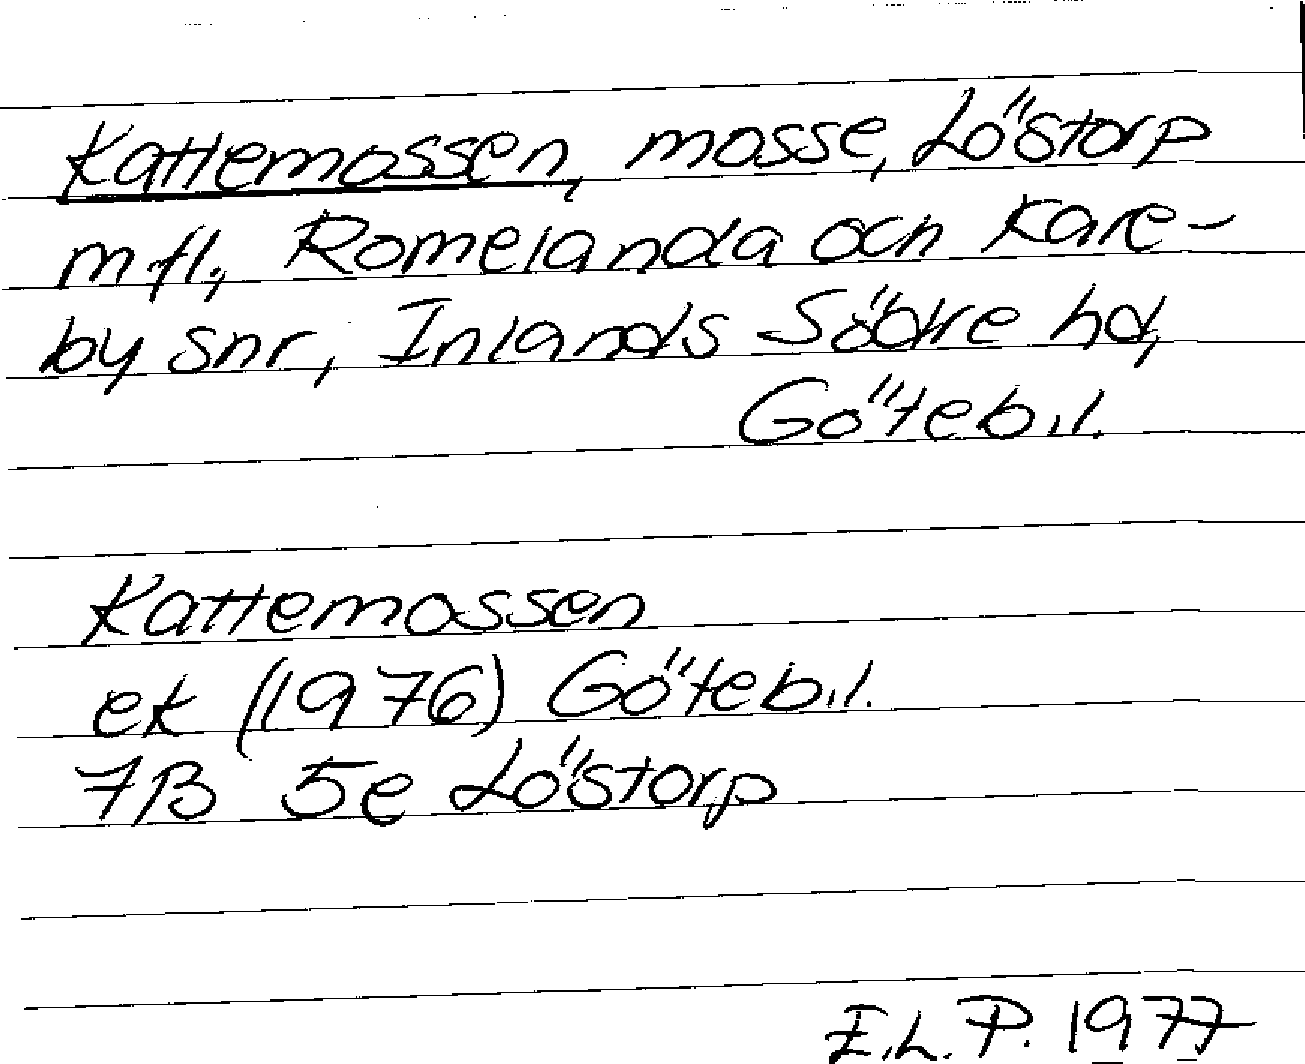 Kattemossen, mosse, Löstorp
m fl., Romelanda och Kare-
by snr, Inlands Södre hd,
Göteb. l.
Kattemossen
ek (1976) Göteb. l.
7B 5e Löstorp
E.L.P. 1977